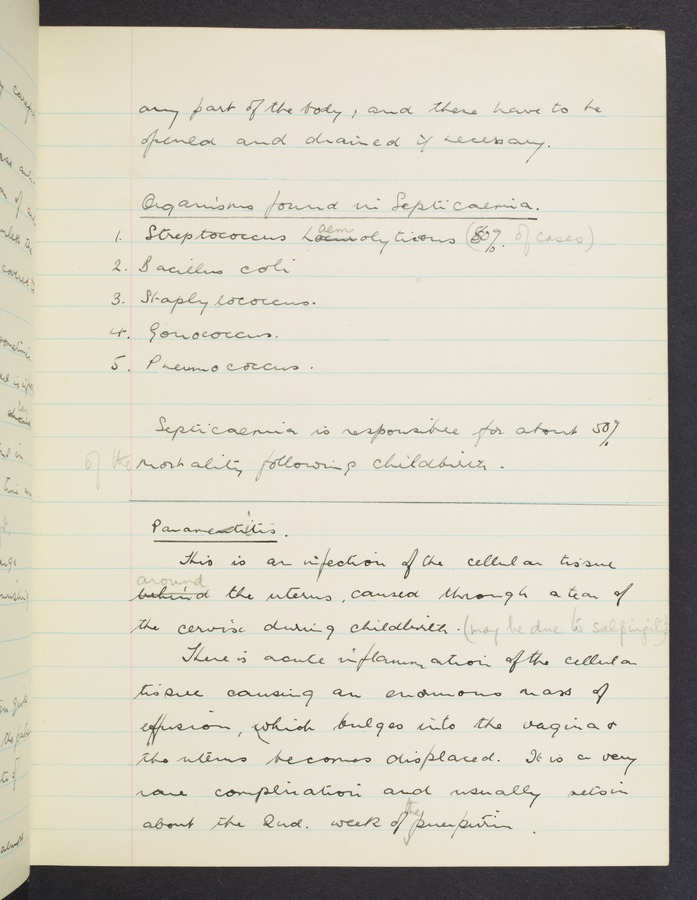 any part of the body, and these have to be
opened and drained if necessary.
Organisms found in Septicaemia.
1. Streptococcus haemolyticus (80% of cases)
2. Bacillus coli
3. Staphylococcus.
4. Gonococcus.
5. Pneumococcus.
Septicaemia is responsible for about 50%
of the mortality following childbirth.
Parametritis.
This is an infection of the cellular tissue
around
behind the uterus, caused through a tear of
the cervix during childbirth. (may be due to salpingitis)
There is acute inflammation of the cellular
tissue causing an enormous mass of
effusion, which bulges into the vagina &
the uterus becomes displaced. It is a very
rare complication and usually sets in
about the 2nd. week of the puerperium.